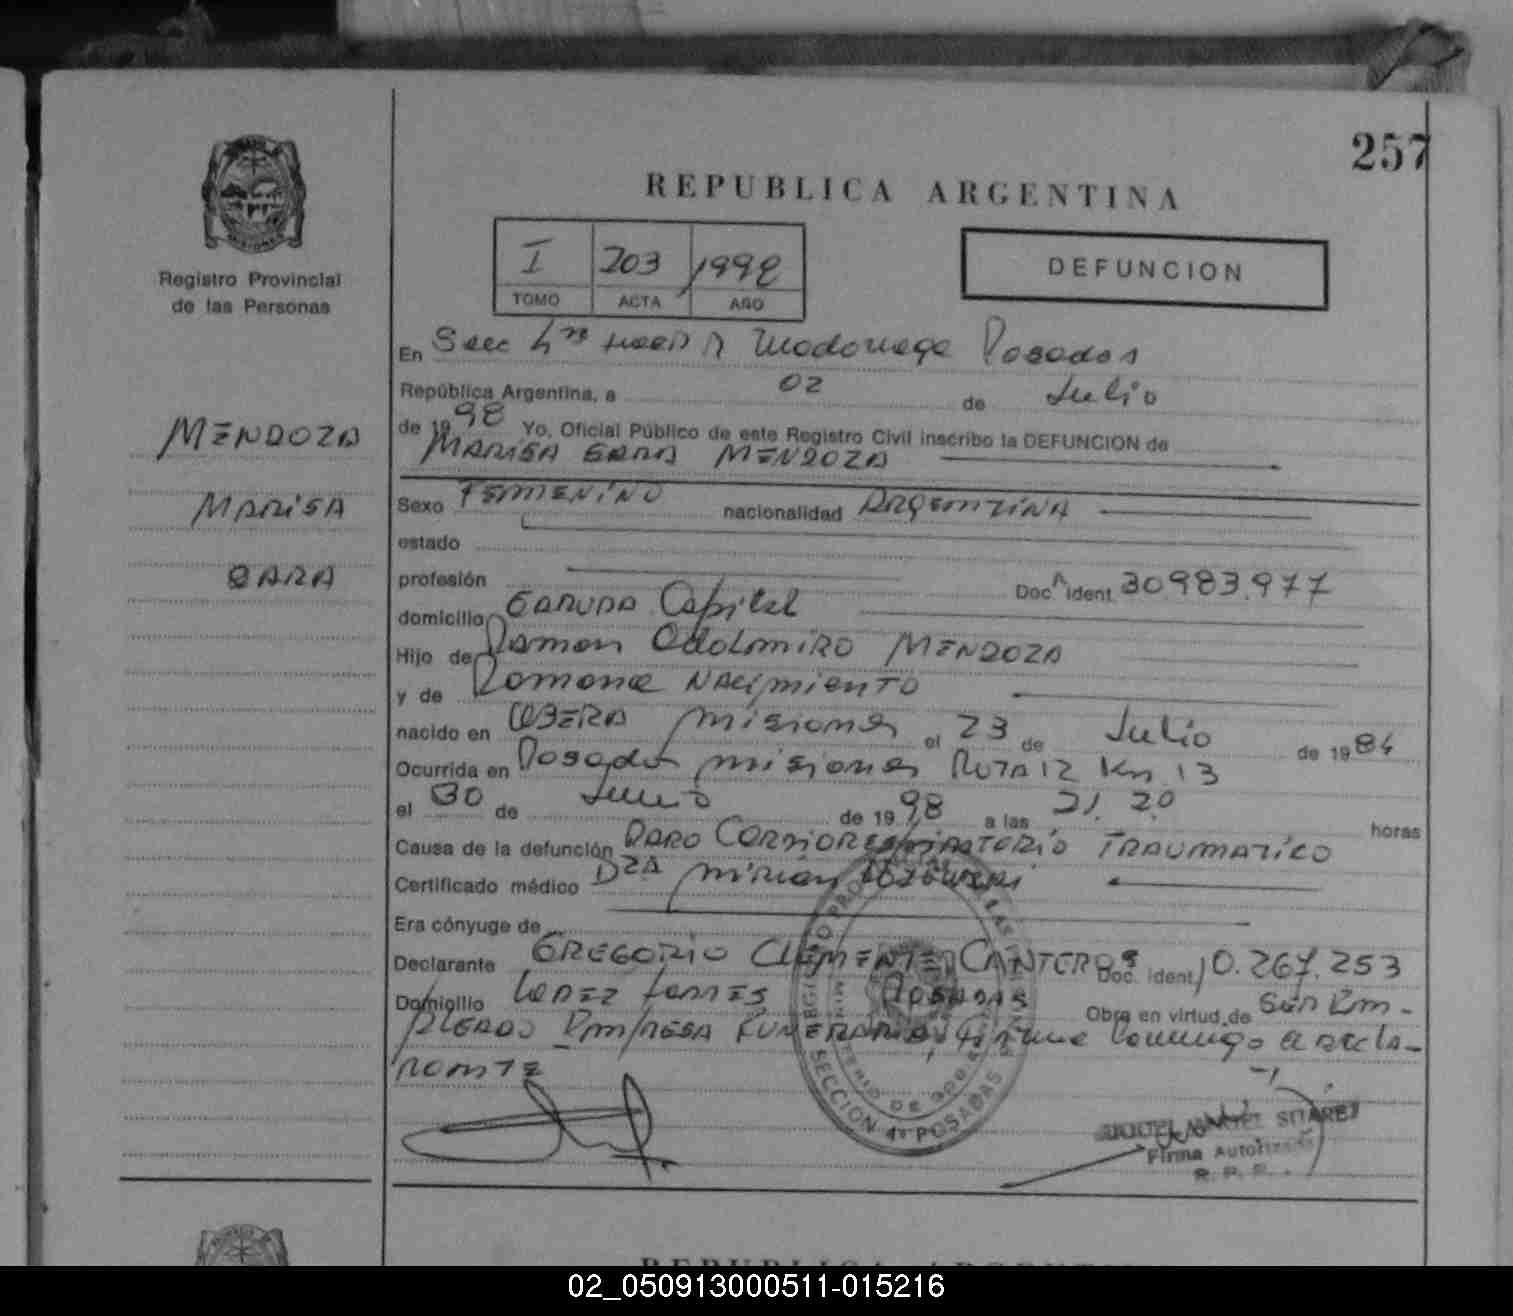 257
REPUBLICA ARGENTINA
Registro Provincial
de las Personas
I 203 1998
TOMO ACTA AÑO
DEFUNCION
En Secc 4ta Posadas
República Argentina, a 02 de Julio
de 1998 Yo, Oficial Público de este Registro Civil inscribo la DEFUNCION de
MARISA SARA MENDOZA
MENDOZA
MARISA
SARA
Sexo FEMENINO nacionalidad ARgentINA
estado
profesión Doc. ident. 30983.977
domicilio GARUPA Capital
Hijo de Ramon ODOLMIRO MENDOZA
y de Romona NACimiento
nacido en OBERA misiones el 23 de Julio de 1984
Ocurrida en Posadas misiones RUTA 12 Km 13
el 30 de Junio de 1998 a las 21.20 horas
Causa de la defunción PARO CARDIORESPIRATORIO TRAUMATICO
Certificado médico DRA MIRIAN
Era cónyuge de
Declarante GREGORIO CLEMENTE CANTEROS Doc. ident. 10.267.253
Domicilio LOPEZ TORRES POSADAS Obra en virtud de SER Em-
PLEADO EMPRESA FUNERARIA, firma conmigo el decla-
RANTE
SECCION 4ª POSADAS
MIGUEL ANGEL SUAREZ
Firma Autorizada
R. P. P.
02_050913000511-015216